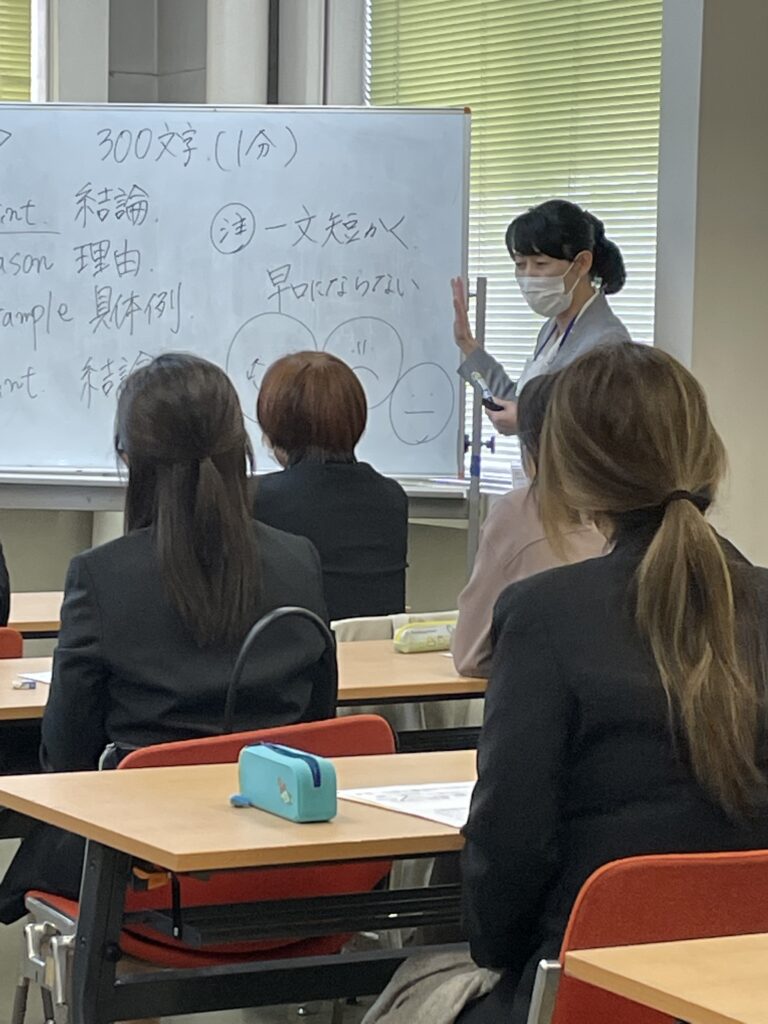 300文字.(1分)
int. 結論.
注 一文短かく.
ason 理由.
早口にならない
ample 具体例.
int. 結論